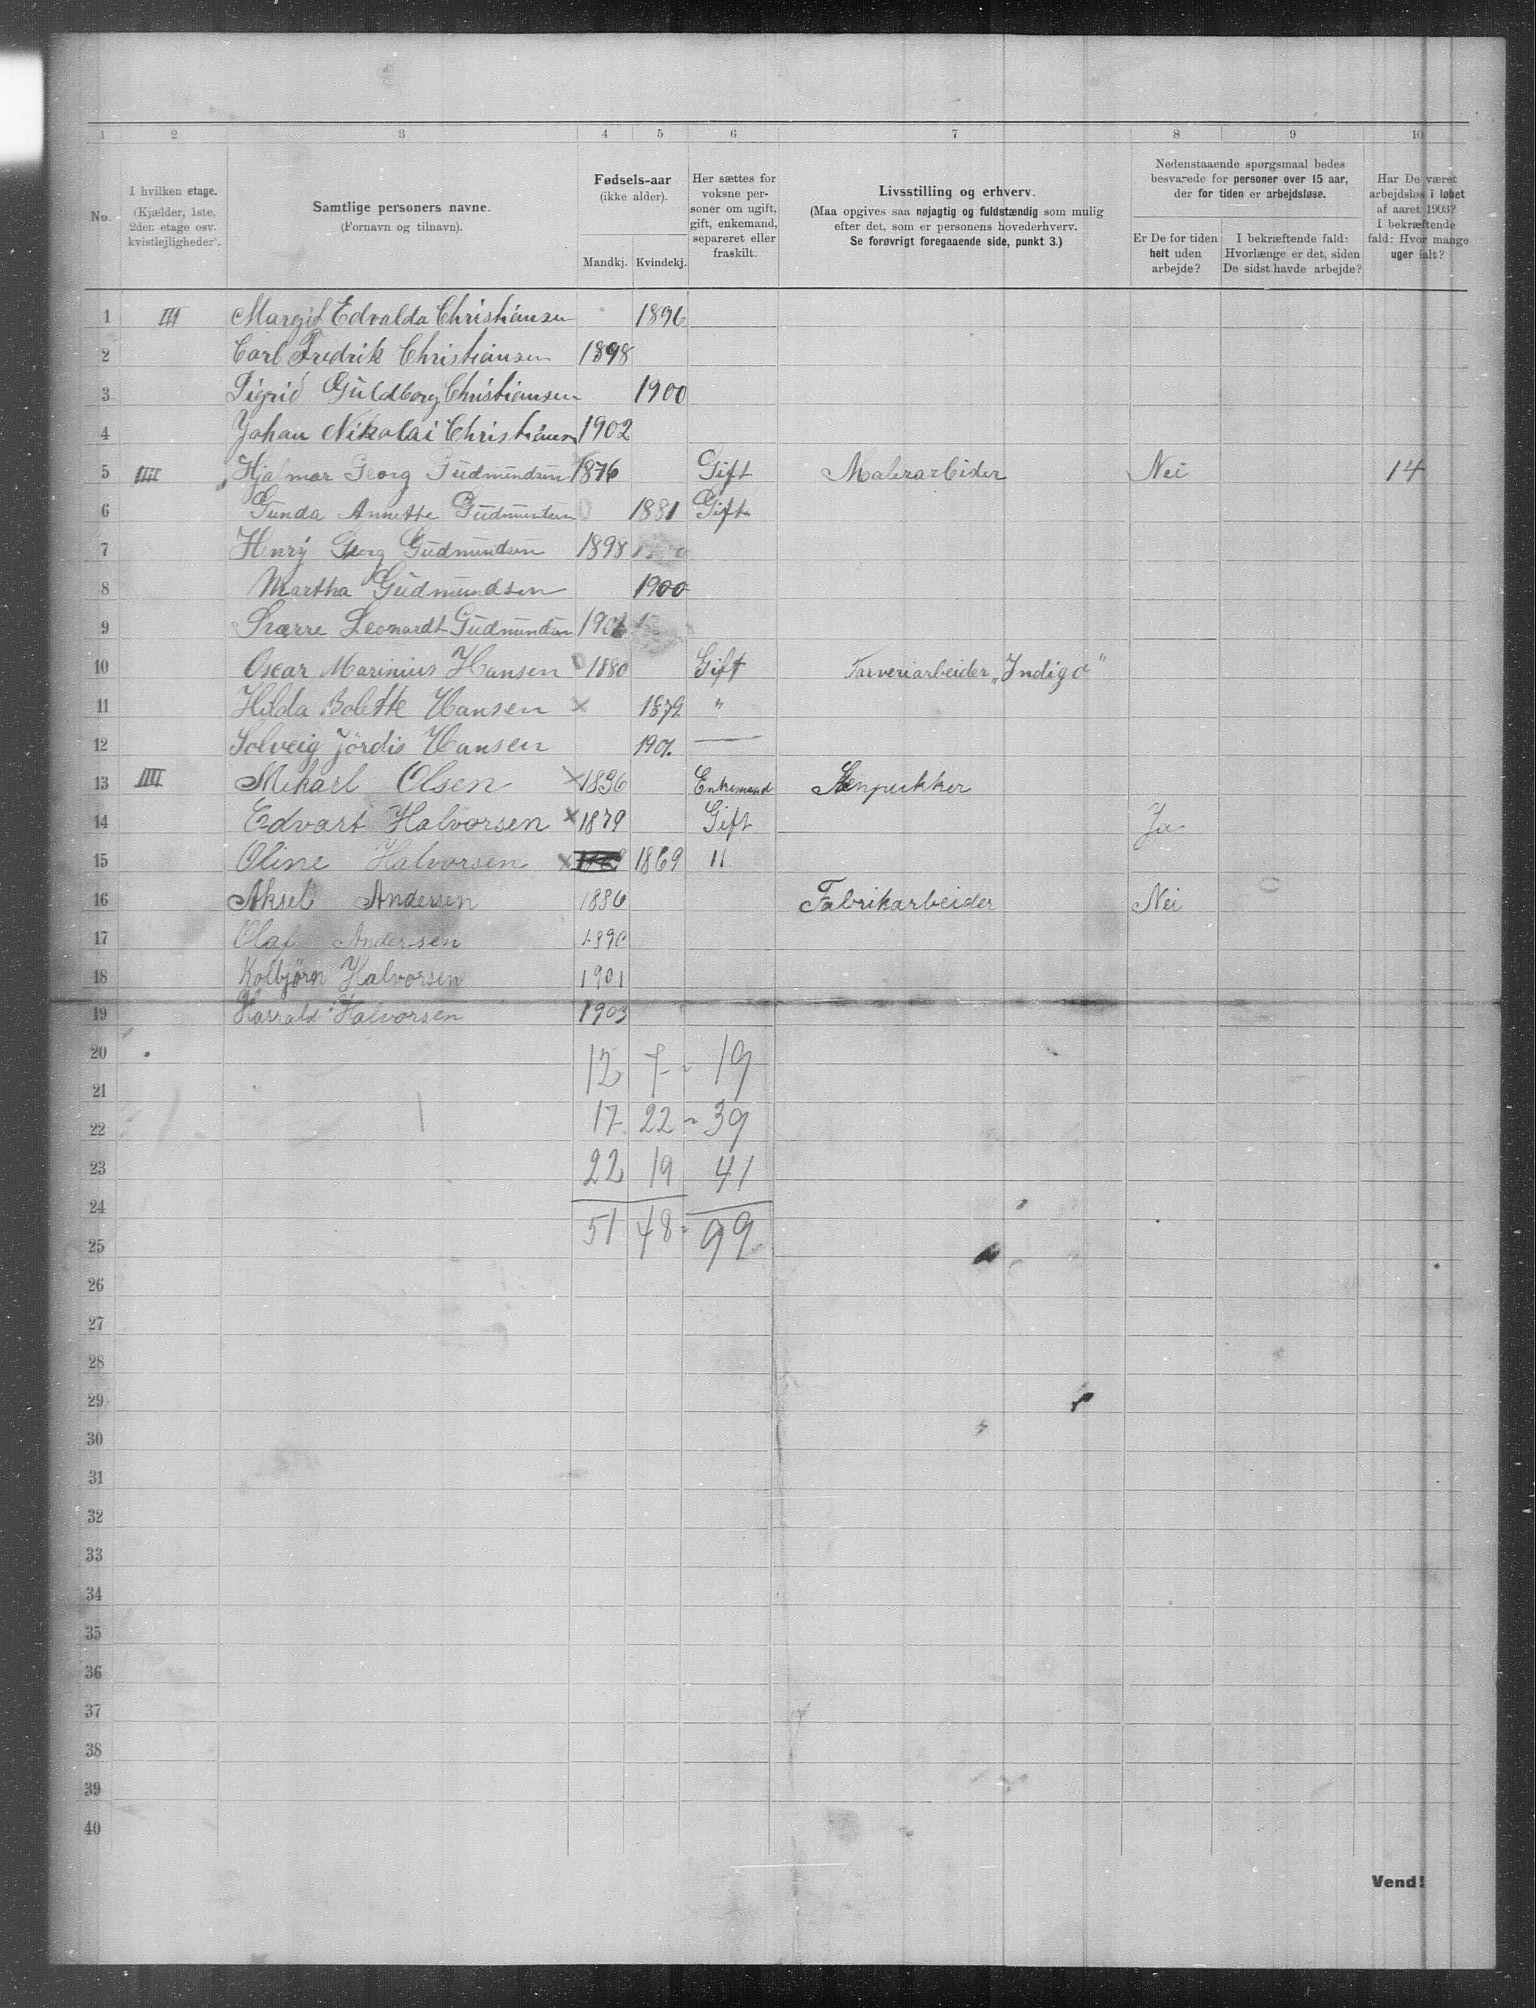 1 2 3 4 5 6 7 8 9 10
No.
I hvilken etage.
(Kjælder, 1ste,
2den etage osv.
kvistlejligheder).
Samtlige personers navne.
(Fornavn og tilnavn).
Fødsels-aar
(ikke alder).
Mandkj. Kvindekj.
Her sættes for
voksne per-
soner om ugift,
gift, enkemand,
separeret eller
fraskilt.
Livsstilling og erhverv.
(Maa opgives saa nøjagtig og fuldstændig som mulig
efter det, som er personens hovederhverv.
Se forøvrigt foregaaende side, punkt 3.)
Nedenstaaende spørgsmaal bedes
besvarede for personer over 15 aar,
der for tiden er arbejdsløse.
Er De for tiden
helt uden
arbejde?
I bekræftende fald:
Hvorlænge er det, siden
De sidst havde arbejde?
Har De været
arbejdsløs i løbet
af aaret 1903?
I bekræftende
fald: Hvor mange
uger ialt?
1 III Margit Edvalda Christiansen 1896
2 Carl Fredrik Christiansen 1898
3 Sigrid Guldborg Christiansen 1900
4 Johan Nikolai Christiansen 1902
5 IIII Hjalmar Georg Gudmundsen 1876 Gift Malerarbeider Nei 14
6 Gunda Annette Gudmundsen 1881 Gift
7 Henry Georg Gudmundsen 1898
8 Martha Gudmundsen 1900
9 Sverre Leonardt Gudmundsen
10 Oscar Marinius Hansen 1880 Gift Farveriarbeider „Indigo"
11 Hilda Bolette Hansen × 1879 "
12 Solveig Jördis Hansen 1901. —
13 IIII Mikael Olsen × 1836 Enkemand Stenpukker
14 Edvart Halvorsen × 1879 Gift Ja
15 Oline Halvorsen × 1869 11
16 Aksel Andersen 1886 Fabrikarbeider Nei
17 Olaf Andersen 1890
18 Kolbjørn Halvorsen 1901
19 Harrald Halvorsen 1903
20 12 7 - 19
21
22 17 22 - 39
23 22 19 41
24
25 51 48 - 99
26
27
28
29
30
31
32
33
34
35
36
37
38
39
40
Vend!